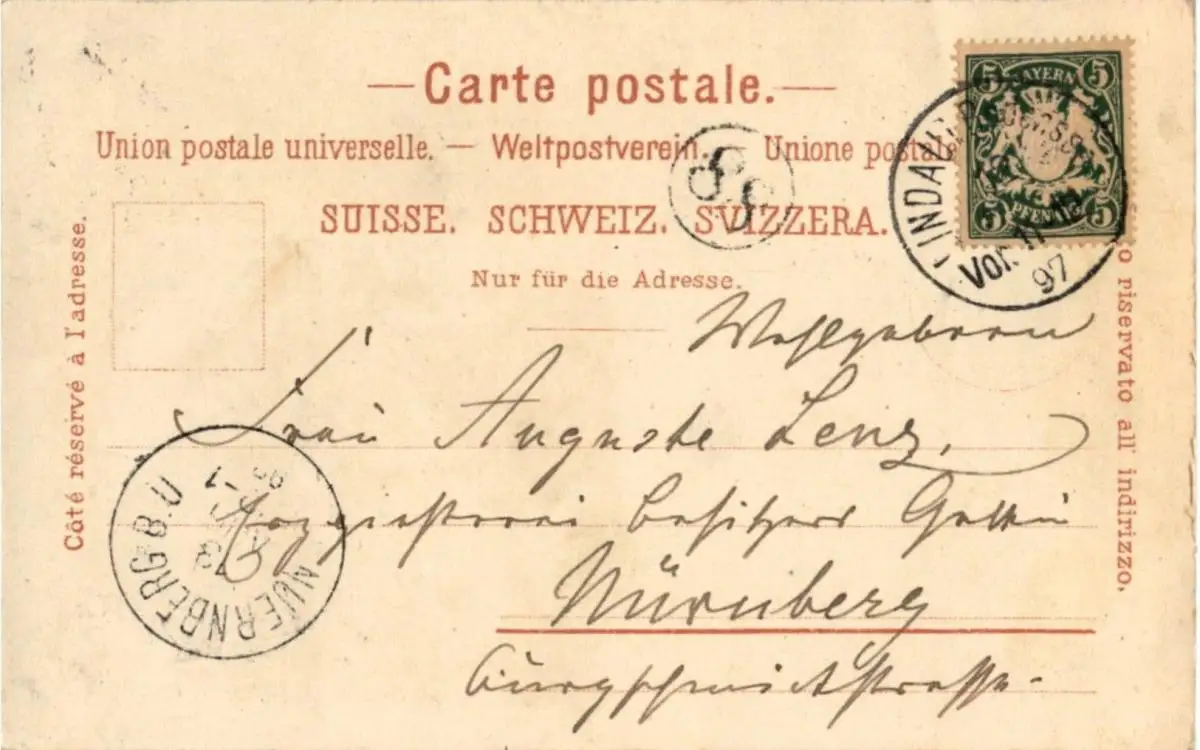 Carte postale.
Union postale universelle. — Weltpostverein. Unione postale
SUISSE. SCHWEIZ. SVIZZERA.
Nur für die Adresse.
Côté réservé à l'adresse.
o riservato all' indirizzo.
5 BAYERN 5
5 PFENNIG 5
LINDAU
Vor. 11-12
97
Wohlgeboren
Frau Auguste Lenz,
besitzers Gattin
Nürnberg
Burgschmietstrasse.
NUERNBERG B.U